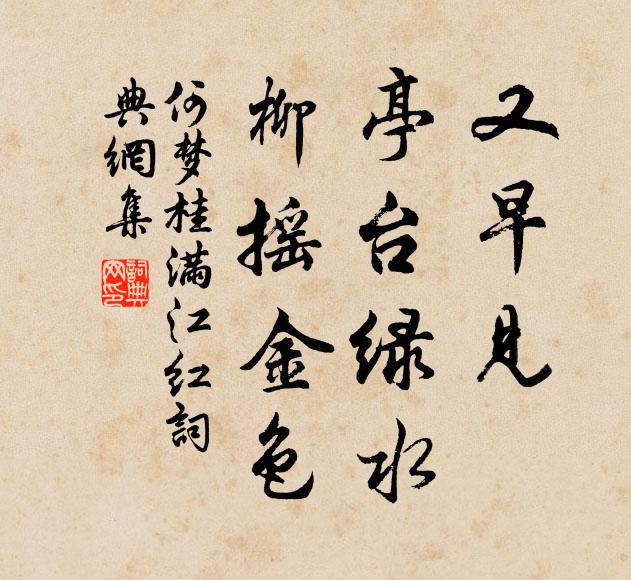 又早见
亭台绿水
柳摇金色
何梦桂满江红词
典網集
詞典网印